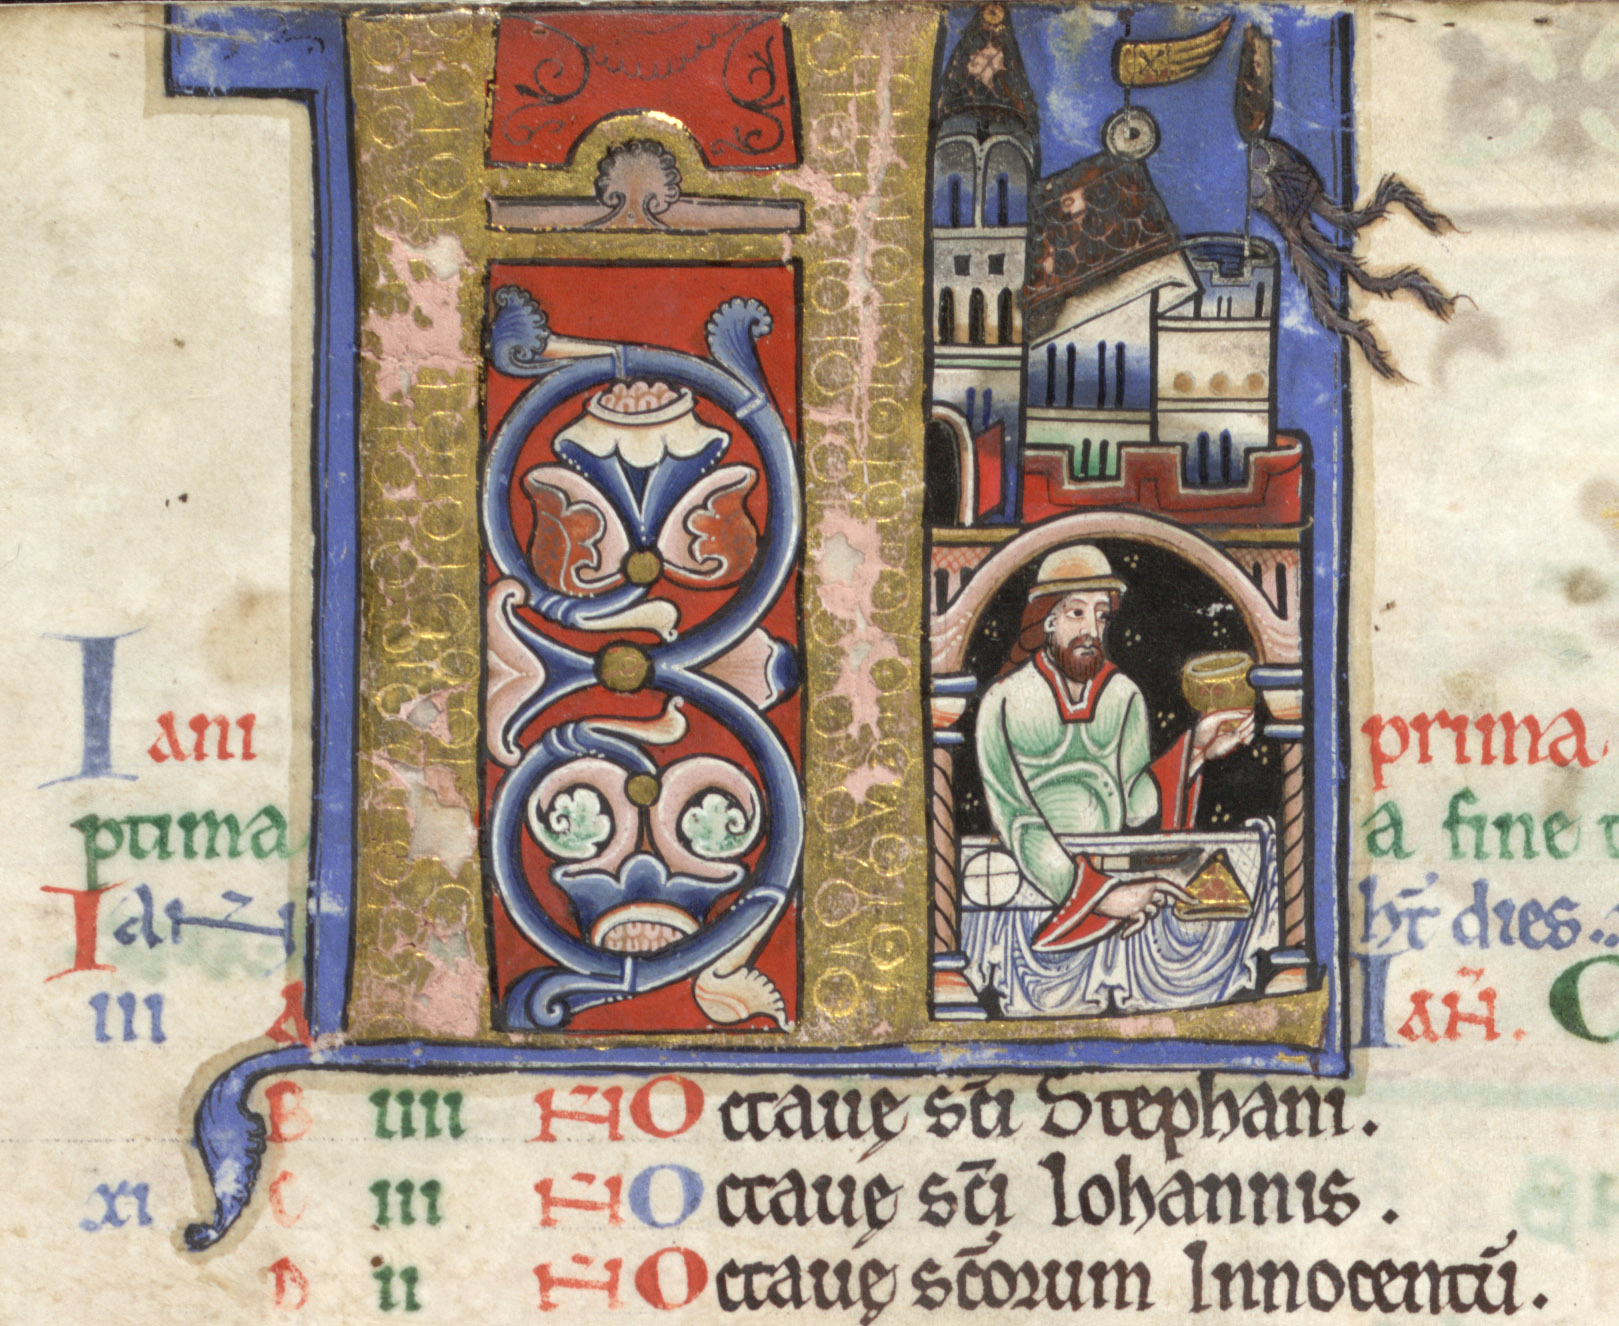 KL
Iani prima
ptima a fine t
Ian hr dies.
iii A Ian. C
B iiii N Octauę sc̄i Stephani.
xi C iii N Octauę sc̄i Iohannis.
D ii N Octauę sc̄orum Innocentū.